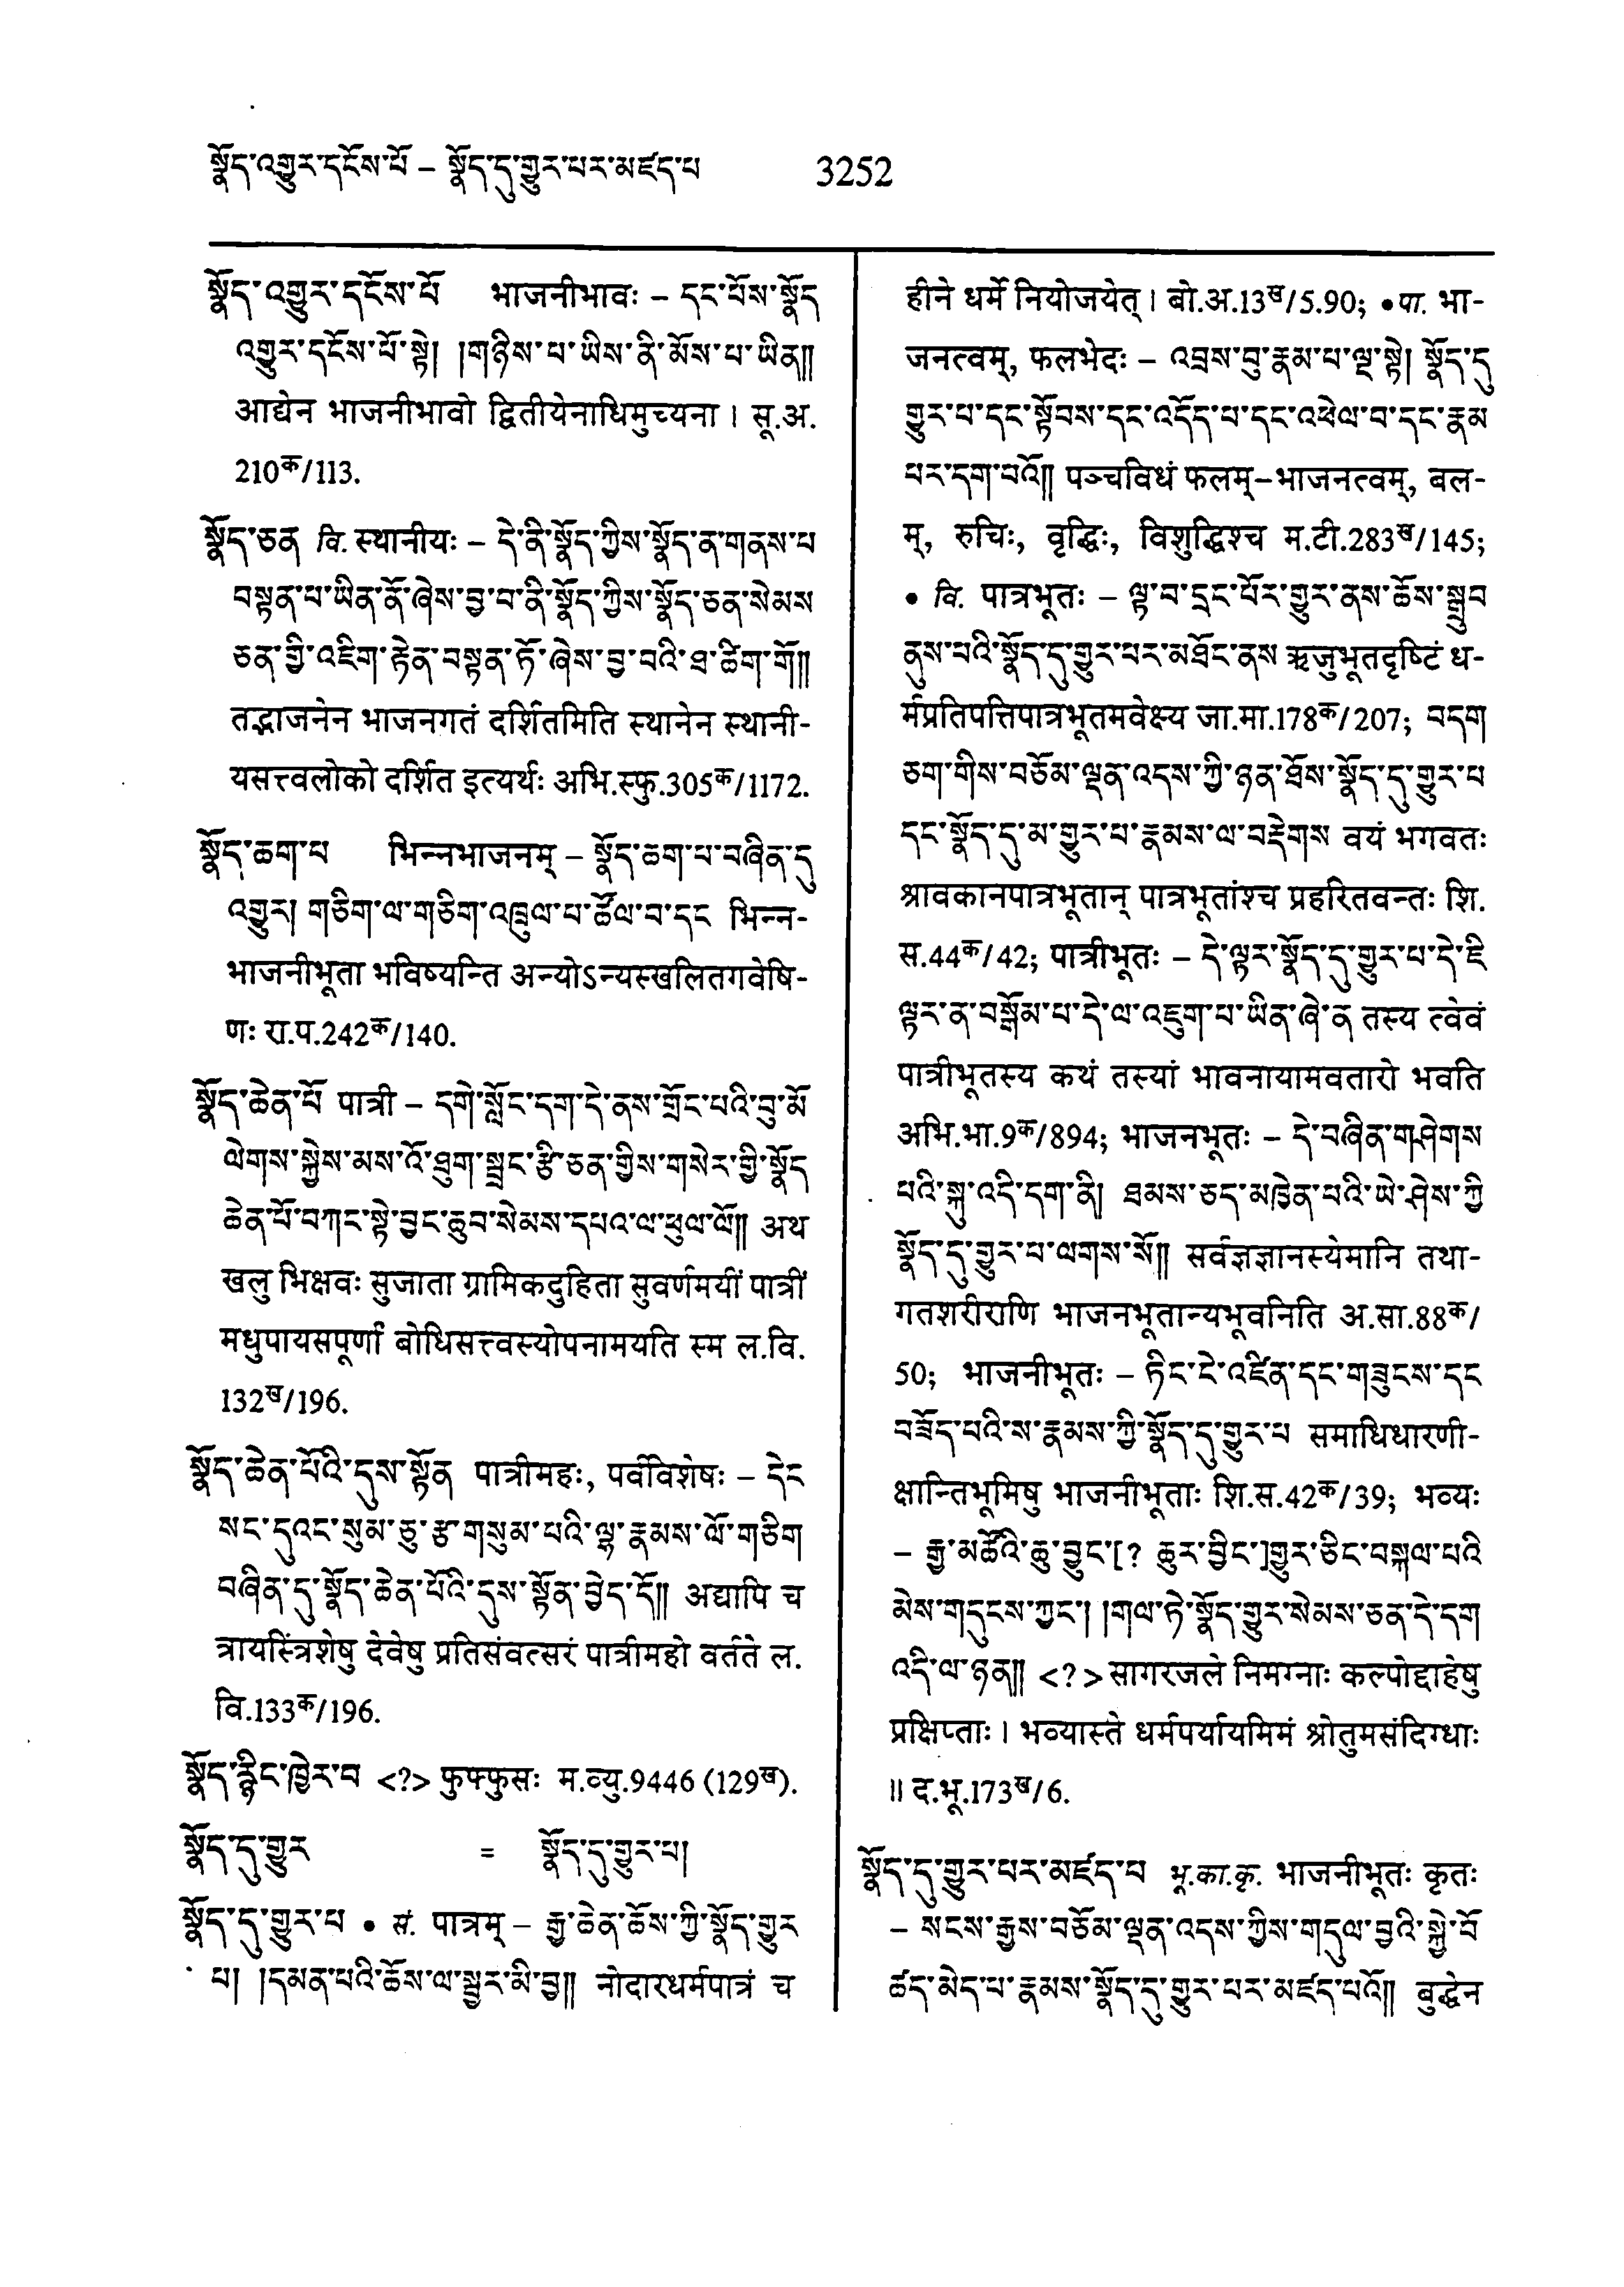 སྣོད་འགྱུར་དངོས་པོ – སྣོད་དུ་གྱུར་པར་མཛད་པ 3252
སྣོད་འགྱུར་དངོས་པོ भाजनीभावः – དང་པོས་སྣོད
འགྱུར་དངོས་པོ་སྟེ། །གཉིས་པ་ཡིས་ནི་མོས་པ་ཡིན།།
आद्येन भाजनीभावो द्वितीयेनाधिमुच्यना । सू.अ.
210क/113.
སྣོད་ཅན वि. स्थानीयः – དེ་ནི་སྣོད་ཀྱིས་སྣོད་ན་གནས་པ
བསྟན་པ་ཡིན་ནོ་ཞེས་བྱ་བ་ནི་སྣོད་ཀྱིས་སྣོད་ཅན་སེམས
ཅན་གྱི་འཇིག་རྟེན་བསྟན་ཏོ་ཞེས་བྱ་བའི་ཐ་ཚིག་གོ།།
तद्भाजनेन भाजनगतं दर्शितमिति स्थानेन स्थानी-
यसत्त्वलोको दर्शित इत्यर्थः अभि.स्फु.305क/1172.
སྣོད་ཆག་པ भिन्नभाजनम् – སྣོད་ཆག་པ་བཞིན་དུ
འགྱུར། གཅིག་ལ་གཅིག་འཁྲུལ་པ་ཚོལ་བ་དང भिन्न-
भाजनीभूता भविष्यन्ति अन्योऽन्यस्खलितगवेषि-
णः रा.प.242क/140.
སྣོད་ཆེན་པོ पात्री – དགེ་སློང་དག་དེ་ནས་གྲོང་པའི་བུ་མོ
ལེགས་སྐྱེས་མས་འོ་ཐུག་སྦྲང་རྩི་ཅན་གྱིས་གསེར་གྱི་སྣོད
ཆེན་པོ་བཀང་སྟེ་བྱང་ཆུབ་སེམས་དཔའ་ལ་ཕུལ་ལོ།། अथ
खलु भिक्षवः सुजाता ग्रामिकदुहिता सुवर्णमयीं पात्रीं
मधुपायसपूर्णां बोधिसत्त्वस्योपनामयति स्म ल.वि.
132ख/196.
སྣོད་ཆེན་པོའི་དུས་སྟོན पात्रीमहः, पर्वविशेषः – དེང
སང་དུའང་སུམ་ཅུ་རྩ་གསུམ་པའི་ལྷ་རྣམས་ལོ་གཅིག
བཞིན་དུ་སྣོད་ཆེན་པོའི་དུས་སྟོན་བྱེད་དོ།། अद्यापि च
त्रायस्त्रिंशेषु देवेषु प्रतिसंवत्सरं पात्रीमहो वर्तते ल.
वि.133क/196.
སྣོད་རྙིང་ཁྱེར་བ <?> फुफ्फुसः म.व्यु.9446 (129ख).
སྣོད་དུ་གྱུར = སྣོད་དུ་གྱུར་པ།
སྣོད་དུ་གྱུར་པ • सं. पात्रम् – རྒྱ་ཆེན་ཆོས་ཀྱི་སྣོད་གྱུར
པ། །དམན་པའི་ཆོས་ལ་སྦྱར་མི་བྱ།། नोदारधर्मपात्रं च
हीने धर्मे नियोजयेत् । बो.अ.13ख/5.90; • पा. भा-
जनत्वम्, फलभेदः – འབྲས་བུ་རྣམ་པ་ལྔ་སྟེ། སྣོད་དུ
གྱུར་པ་དང་སྟོབས་དང་འདོད་པ་དང་འཕེལ་བ་དང་རྣམ
པར་དག་པའོ།། पञ्चविधं फलम्–भाजनत्वम्, बल-
म्, रुचिः, वृद्धिः, विशुद्धिश्च म.टी.283ख/145;
• वि. पात्रभूतः – ལྟ་བ་དྲང་པོར་གྱུར་ནས་ཆོས་སྒྲུབ
ནུས་པའི་སྣོད་དུ་གྱུར་པར་མཐོང་ནས ऋजुभूतदृष्टिं ध-
र्मप्रतिपत्तिपात्रभूतमवेक्ष्य जा.मा.178क/207; བདག
ཅག་གིས་བཅོམ་ལྡན་འདས་ཀྱི་ཉན་ཐོས་སྣོད་དུ་གྱུར་པ
དང་སྣོད་དུ་མ་གྱུར་པ་རྣམས་ལ་བརྡེགས वयं भगवतः
श्रावकानपात्रभूतान् पात्रभूतांश्च प्रहरितवन्तः शि.
स.44क/42; पात्रीभूतः – དེ་ལྟར་སྣོད་དུ་གྱུར་པ་དེ་ཇི
ལྟར་ན་བསྒོམ་པ་དེ་ལ་འཇུག་པ་ཡིན་ཞེ་ན तस्य त्वेवं
पात्रीभूतस्य कथं तस्यां भावनायामवतारो भवति
अभि.भा.9क/894; भाजनभूतः – དེ་བཞིན་གཤེགས
པའི་སྐུ་འདི་དག་ནི། ཐམས་ཅད་མཁྱེན་པའི་ཡེ་ཤེས་ཀྱི
སྣོད་དུ་གྱུར་པ་ལགས་སོ།། सर्वज्ञज्ञानस्येमानि तथा-
गतशरीराणि भाजनभूतान्यभूवनिति अ.सा.88क/
50; भाजनीभूतः – ཏིང་ངེ་འཛིན་དང་གཟུངས་དང
བཟོད་པའི་ས་རྣམས་ཀྱི་སྣོད་དུ་གྱུར་པ समाधिधारणी-
क्षान्तिभूमिषु भाजनीभूताः शि.स.42क/39; भव्यः
– རྒྱ་མཚོའི་ཆུ་བྱུང་[? ཆུར་བྱིང་]གྱུར་ཅིང་བསྐལ་པའི
མེས་གདུངས་ཀྱང་། །གལ་ཏེ་སྣོད་གྱུར་སེམས་ཅན་དེ་དག
འདི་ལ་ཉན།། <?> सागरजले निमग्नाः कल्पोद्दाहेषु
प्रक्षिप्ताः । भव्यास्ते धर्मपर्यायमिमं श्रोतुमसंदिग्धाः
॥ द.भू.173ख/6.
སྣོད་དུ་གྱུར་པར་མཛད་པ भू.का.कृ. भाजनीभूतः कृतः
– སངས་རྒྱས་བཅོམ་ལྡན་འདས་ཀྱིས་གདུལ་བྱའི་སྐྱེ་བོ
ཚད་མེད་པ་རྣམས་སྣོད་དུ་གྱུར་པར་མཛད་པའོ།། बुद्धेन